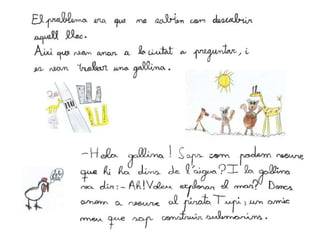 El problema era que no sabien com descobrir
aquell lloc.
Així que van anar a la ciutat a preguntar, i
es van trobar una gallina.
-Hola gallina! Saps com podem veure
que hi ha dins de l'aigua? I la gallina
va dir:- Ah! Voleu explorar el mar? Doncs
anem a veure al pirata Tupi, un amic
meu que sap construir submarins.